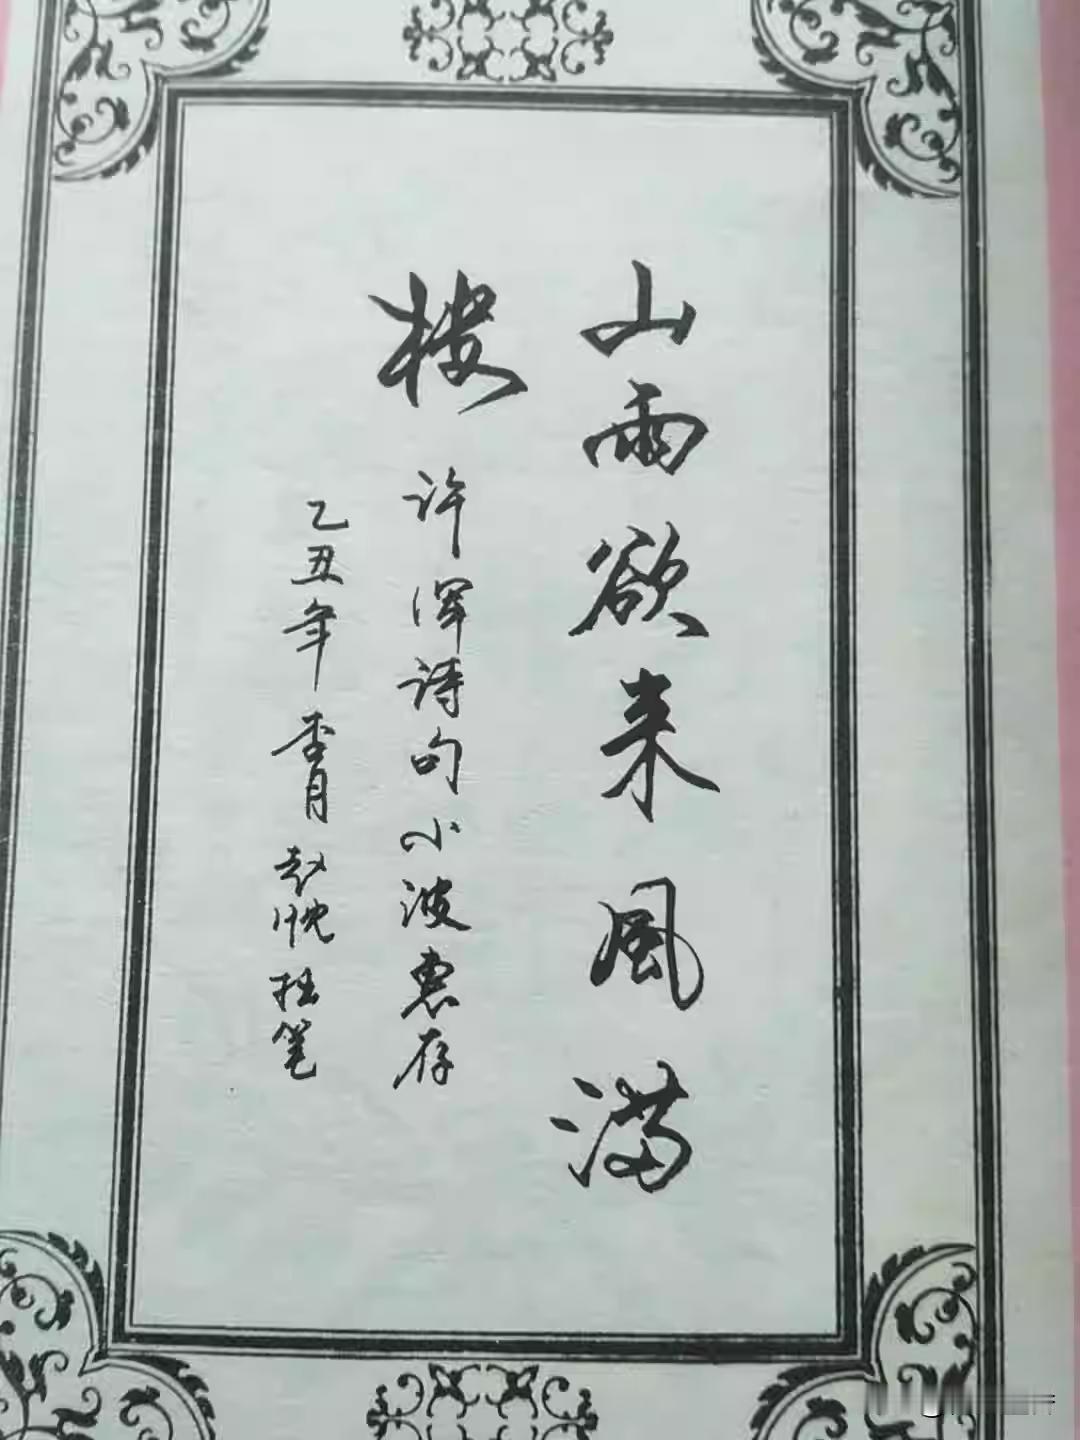 山雨欲来風满
楼
许浑诗句小波惠存
乙丑年杏月赵忱拙笔